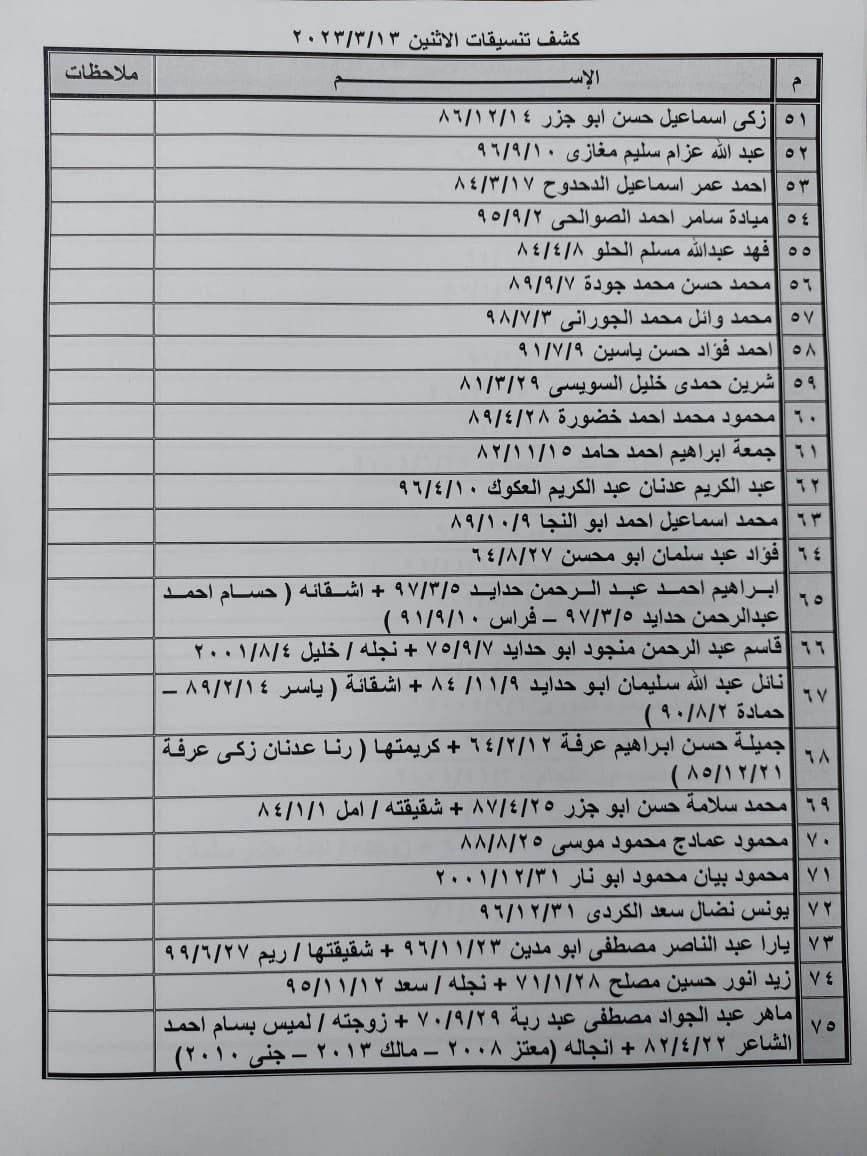 كشف تنسيقات الاثنين ٢٠٢٣/٣/١٣
م الإســـم ملاحظات
٥١ زكى اسماعيل حسن ابو جزر ٨٦/١٢/١٤
٥٢ عبد الله عزام سليم مغازى ٩٦/٩/١٠
٥٣ احمد عمر اسماعيل الدحدوح ٨٤/٣/١٧
٥٤ ميادة سامر احمد الصوالحى ٩٥/٩/٢
٥٥ فهد عبدالله مسلم الحلو ٨٤/٤/٨
٥٦ محمد حسن محمد جودة ٨٩/٩/٧
٥٧ محمد وائل محمد الجورانى ٩٨/٧/٣
٥٨ احمد فؤاد حسن ياسين ٩١/٧/٩
٥٩ شرين حمدى خليل السويسى ٨١/٣/٢٩
٦٠ محمود محمد احمد خضورة ٨٩/٤/٢٨
٦١ جمعة ابراهيم احمد حامد ٨٢/١١/١٥
٦٢ عبد الكريم عدنان عبد الكريم العكوك ٩٦/٤/١٠
٦٣ محمد اسماعيل احمد ابو النجا ٨٩/١٠/٩
٦٤ فؤاد عبد سلمان ابو محسن ٦٤/٨/٢٧
٦٥ ابراهيم احمد عبد الرحمن حدايد ٩٧/٣/٥ + اشقائه ( حسام احمد
عبدالرحمن حدايد ٩٧/٣/٥ – فراس ٩١/٩/١٠ )
٦٦ قاسم عبد الرحمن منجود ابو حدايد ٧٥/٩/٧ + نجله / خليل ٢٠٠١/٨/٤
٦٧ نائل عبد الله سليمان ابو حدايد ٨٤/١١/٩ + اشقائة ( ياسر ٨٩/٢/١٤ –
حمادة ٩٠/٨/٢ )
٦٨ جميلة حسن ابراهيم عرفة ٦٤/٢/١٢ + كريمتها ( رنا عدنان زكى عرفة
٨٥/١٢/٢١ )
٦٩ محمد سلامة حسن ابو جزر ٨٧/٤/٢٥ + شقيقته / امل ٨٤/١/١
٧٠ محمود عمادج محمود موسى ٨٨/٨/٢٥
٧١ محمود بيان محمود ابو نار ٢٠٠١/١٢/٣١
٧٢ يونس نضال سعد الكردى ٩٦/١٢/٣١
٧٣ يارا عبد الناصر مصطفى ابو مدين ٩٦/١١/٢٣ + شقيقتها / ريم ٩٩/٦/٢٧
٧٤ زيد انور حسين مصلح ٧١/١/٢٨ + نجله / سعد ٩٥/١١/١٢
٧٥ ماهر عبد الجواد مصطفى عبد ربة ٧٠/٩/٢٩ + زوجته / لميس بسام احمد
الشاعر ٨٢/٤/٢٢ + انجاله (معتز ٢٠٠٨ – مالك ٢٠١٣ – جنى ٢٠١٠)